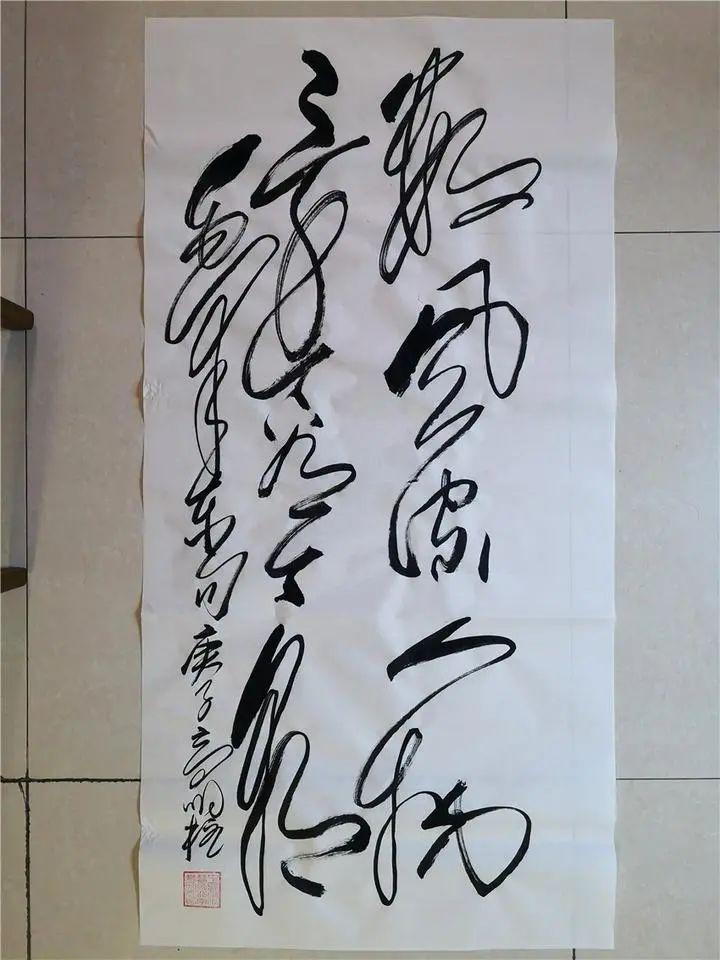 数风流人物
还看今朝
毛泽东句 庚子